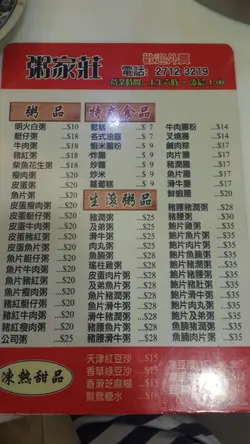 粥家莊
歡迎外賣
電話: 2712 3219
粥品
明火白粥...$10
艇仔粥...$18
牛肉粥...$18
豬紅粥...$18
柴魚花生粥...$18
瘦肉粥...$20
皮蛋粥...$20
魚片粥...$20
皮蛋瘦肉粥...$20
皮蛋艇仔粥...$20
皮蛋牛肉粥...$20
皮蛋豬紅粥...$20
皮蛋魚片粥...$20
魚片艇仔粥...$20
魚片牛肉粥...$20
魚片豬紅粥...$20
魚片瘦肉粥...$20
豬紅艇仔粥...$20
豬紅牛肉粥...$20
豬紅瘦肉粥...$20
公司粥...$25
特式食品
鬆糕...$ 7
各式油器...$ 7
蝦米腸粉...$ 9
炸腸...$ 9
炒麵...$ 9
炒米...$ 9
蘿蔔糕...$ 9
牛肉腸粉...$14
叉燒腸...$14
鹹肉粽...$14
肉片腸...$14
豬潤腸...$14
魚片腸...$14
滑牛腸...$14
鮮蝦腸...$20
生滾粥品
豬潤粥...$25
及弟粥...$25
滑牛粥...$25
肉丸粥...$25
魚腩粥...$28
瑤柱雞粥...$28
皮蛋肉片粥...$28
及弟魚片粥...$28
魚片滑牛粥...$28
滑牛豬潤粥...$28
魚片肉丸粥...$28
魚片豬潤粥...$28
豬腰滑牛粥...$28
豬腰豬潤粥...$35
豬腰肉丸粥...$35
鮑魚雞粥...$35
鮑魚滑牛粥...$35
鮑魚豬潤粥...$35
鮑魚肉片粥...$35
豬腰粥...$35
鮑魚腰粥...$35
鮑魚肉丸粥...$35
鮑魚魚片粥...$35
鮑魚及弟粥...$35
魚腩豬潤粥...$35
魚腩肉片粥...$35
凍熱甜品
天津紅豆沙...$15
香草綠豆沙...$15
香滑芝麻糊...$15